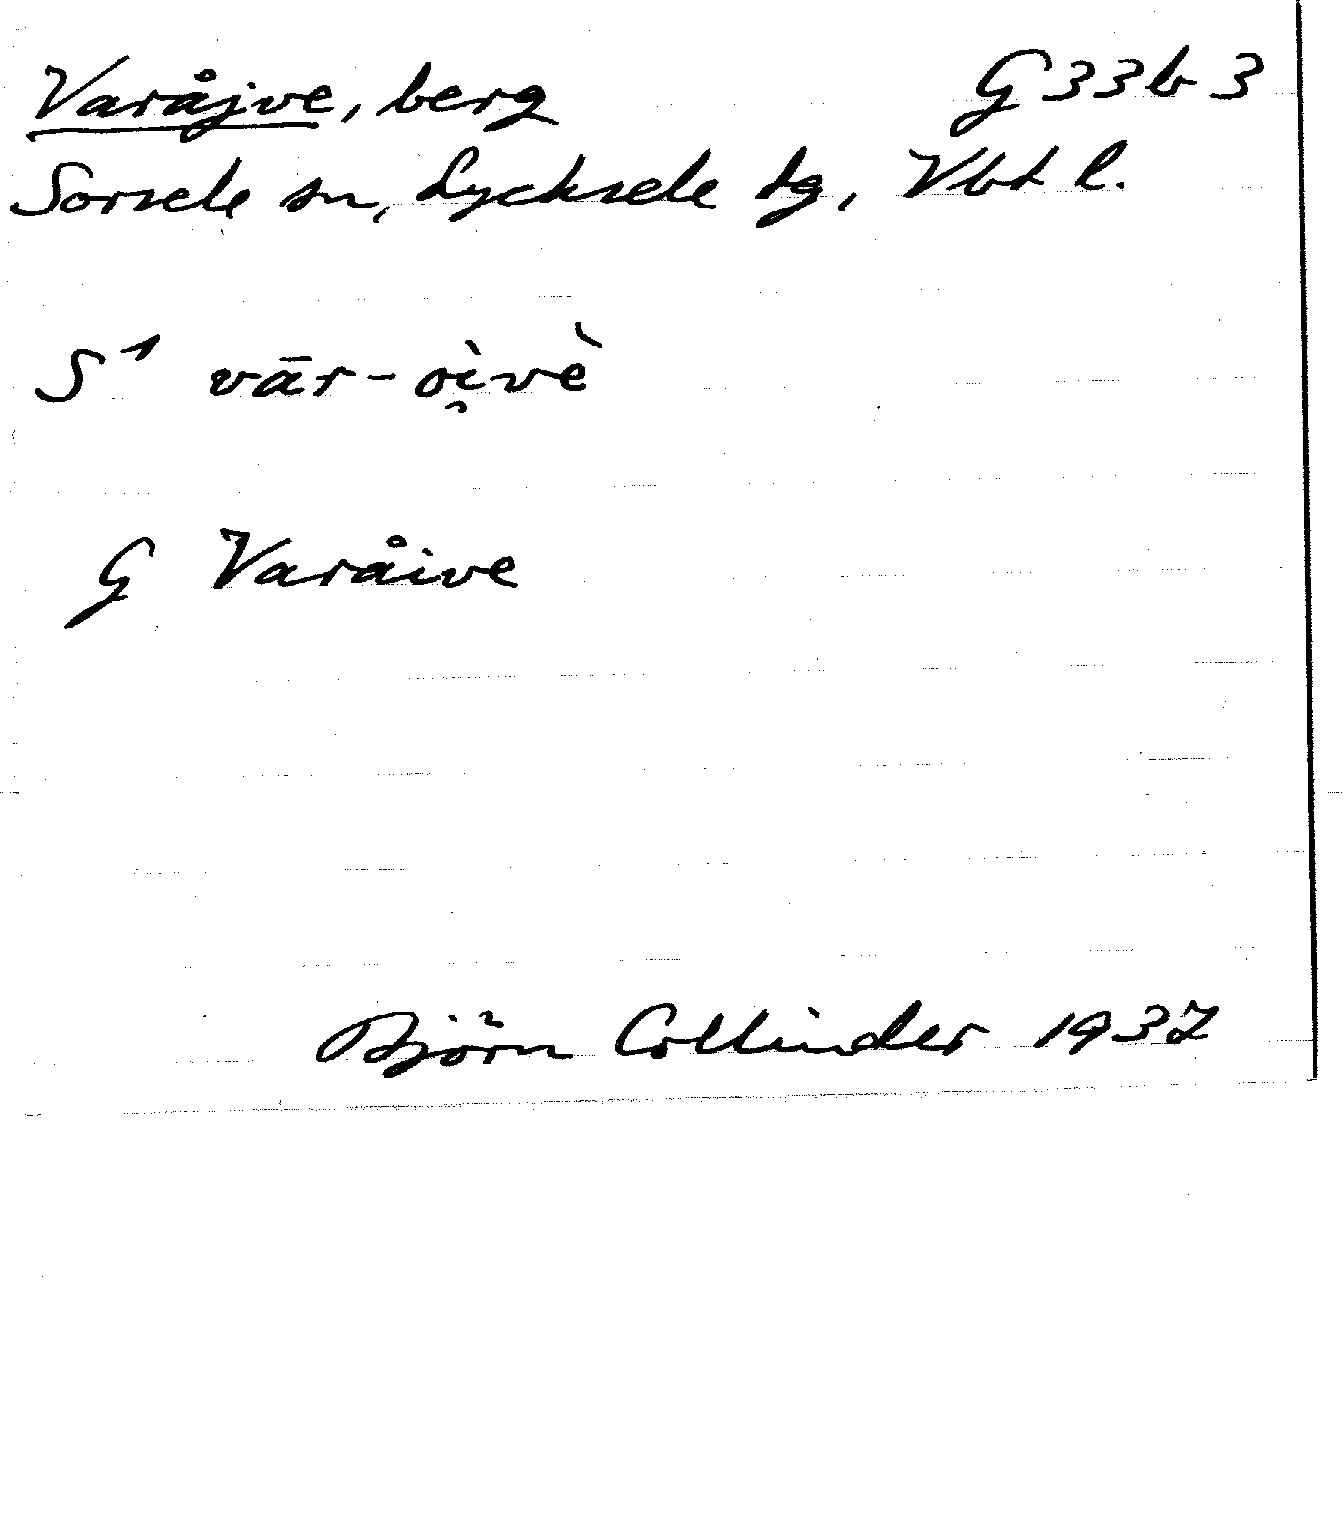 Varåjve, berg G 33 b 3
Sorsele sn, Lycksele tg, Vbt l.
S¹ vār-oi̯vè
G Varåive
Björn Collinder 1937